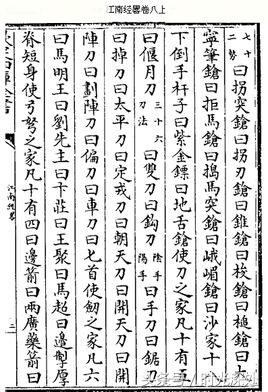 江南经畧卷八上
七十二勢曰拐突鎗曰拐刃鎗曰錐鎗曰梭鎗曰槌鎗曰大
寧筆鎗曰拒馬鎗曰搗馬突鎗曰峨嵋鎗曰沙家十
下倒手杆子曰紫金鏢曰地舌鎗使刀之家凡十有五
曰偃月刀三十六刀法曰雙刀曰鈎刀陰手陽手曰手刀曰鋸刀
曰掉刀曰太平刀曰定戎刀曰朝天刀曰開天刀曰開
陣刀曰劃陣刀曰偏刀曰車刀曰匕首使劒之家凡六
曰馬明王曰劉先主曰卞莊曰王聚曰馬超曰邊掣厚
脊短身使弓弩之家凡十有四曰邊箭曰兩廣藥箭曰